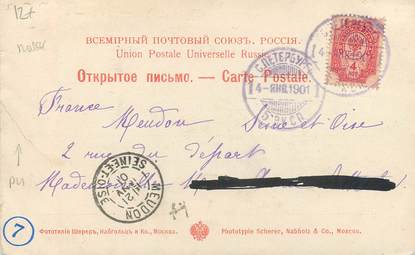 ВСЕМІРНЫЙ ПОЧТОВЫЙ СОЮЗЪ. РОССІЯ.
Union Postale Universelle Russie
Открытое письмо. — Carte Postale.
С.ПЕТЕРБУРГ
4-ЯНВ.1901
France
Meudon Seine et Oise
2 rue du départ
Mademoiselle
MEUDON
SEINE-ET-OISE
7
Фототипія Шереръ, Набгольцъ и Ко., Москва.
Phototypie Scherer, Nabholz & Co., Moscou.